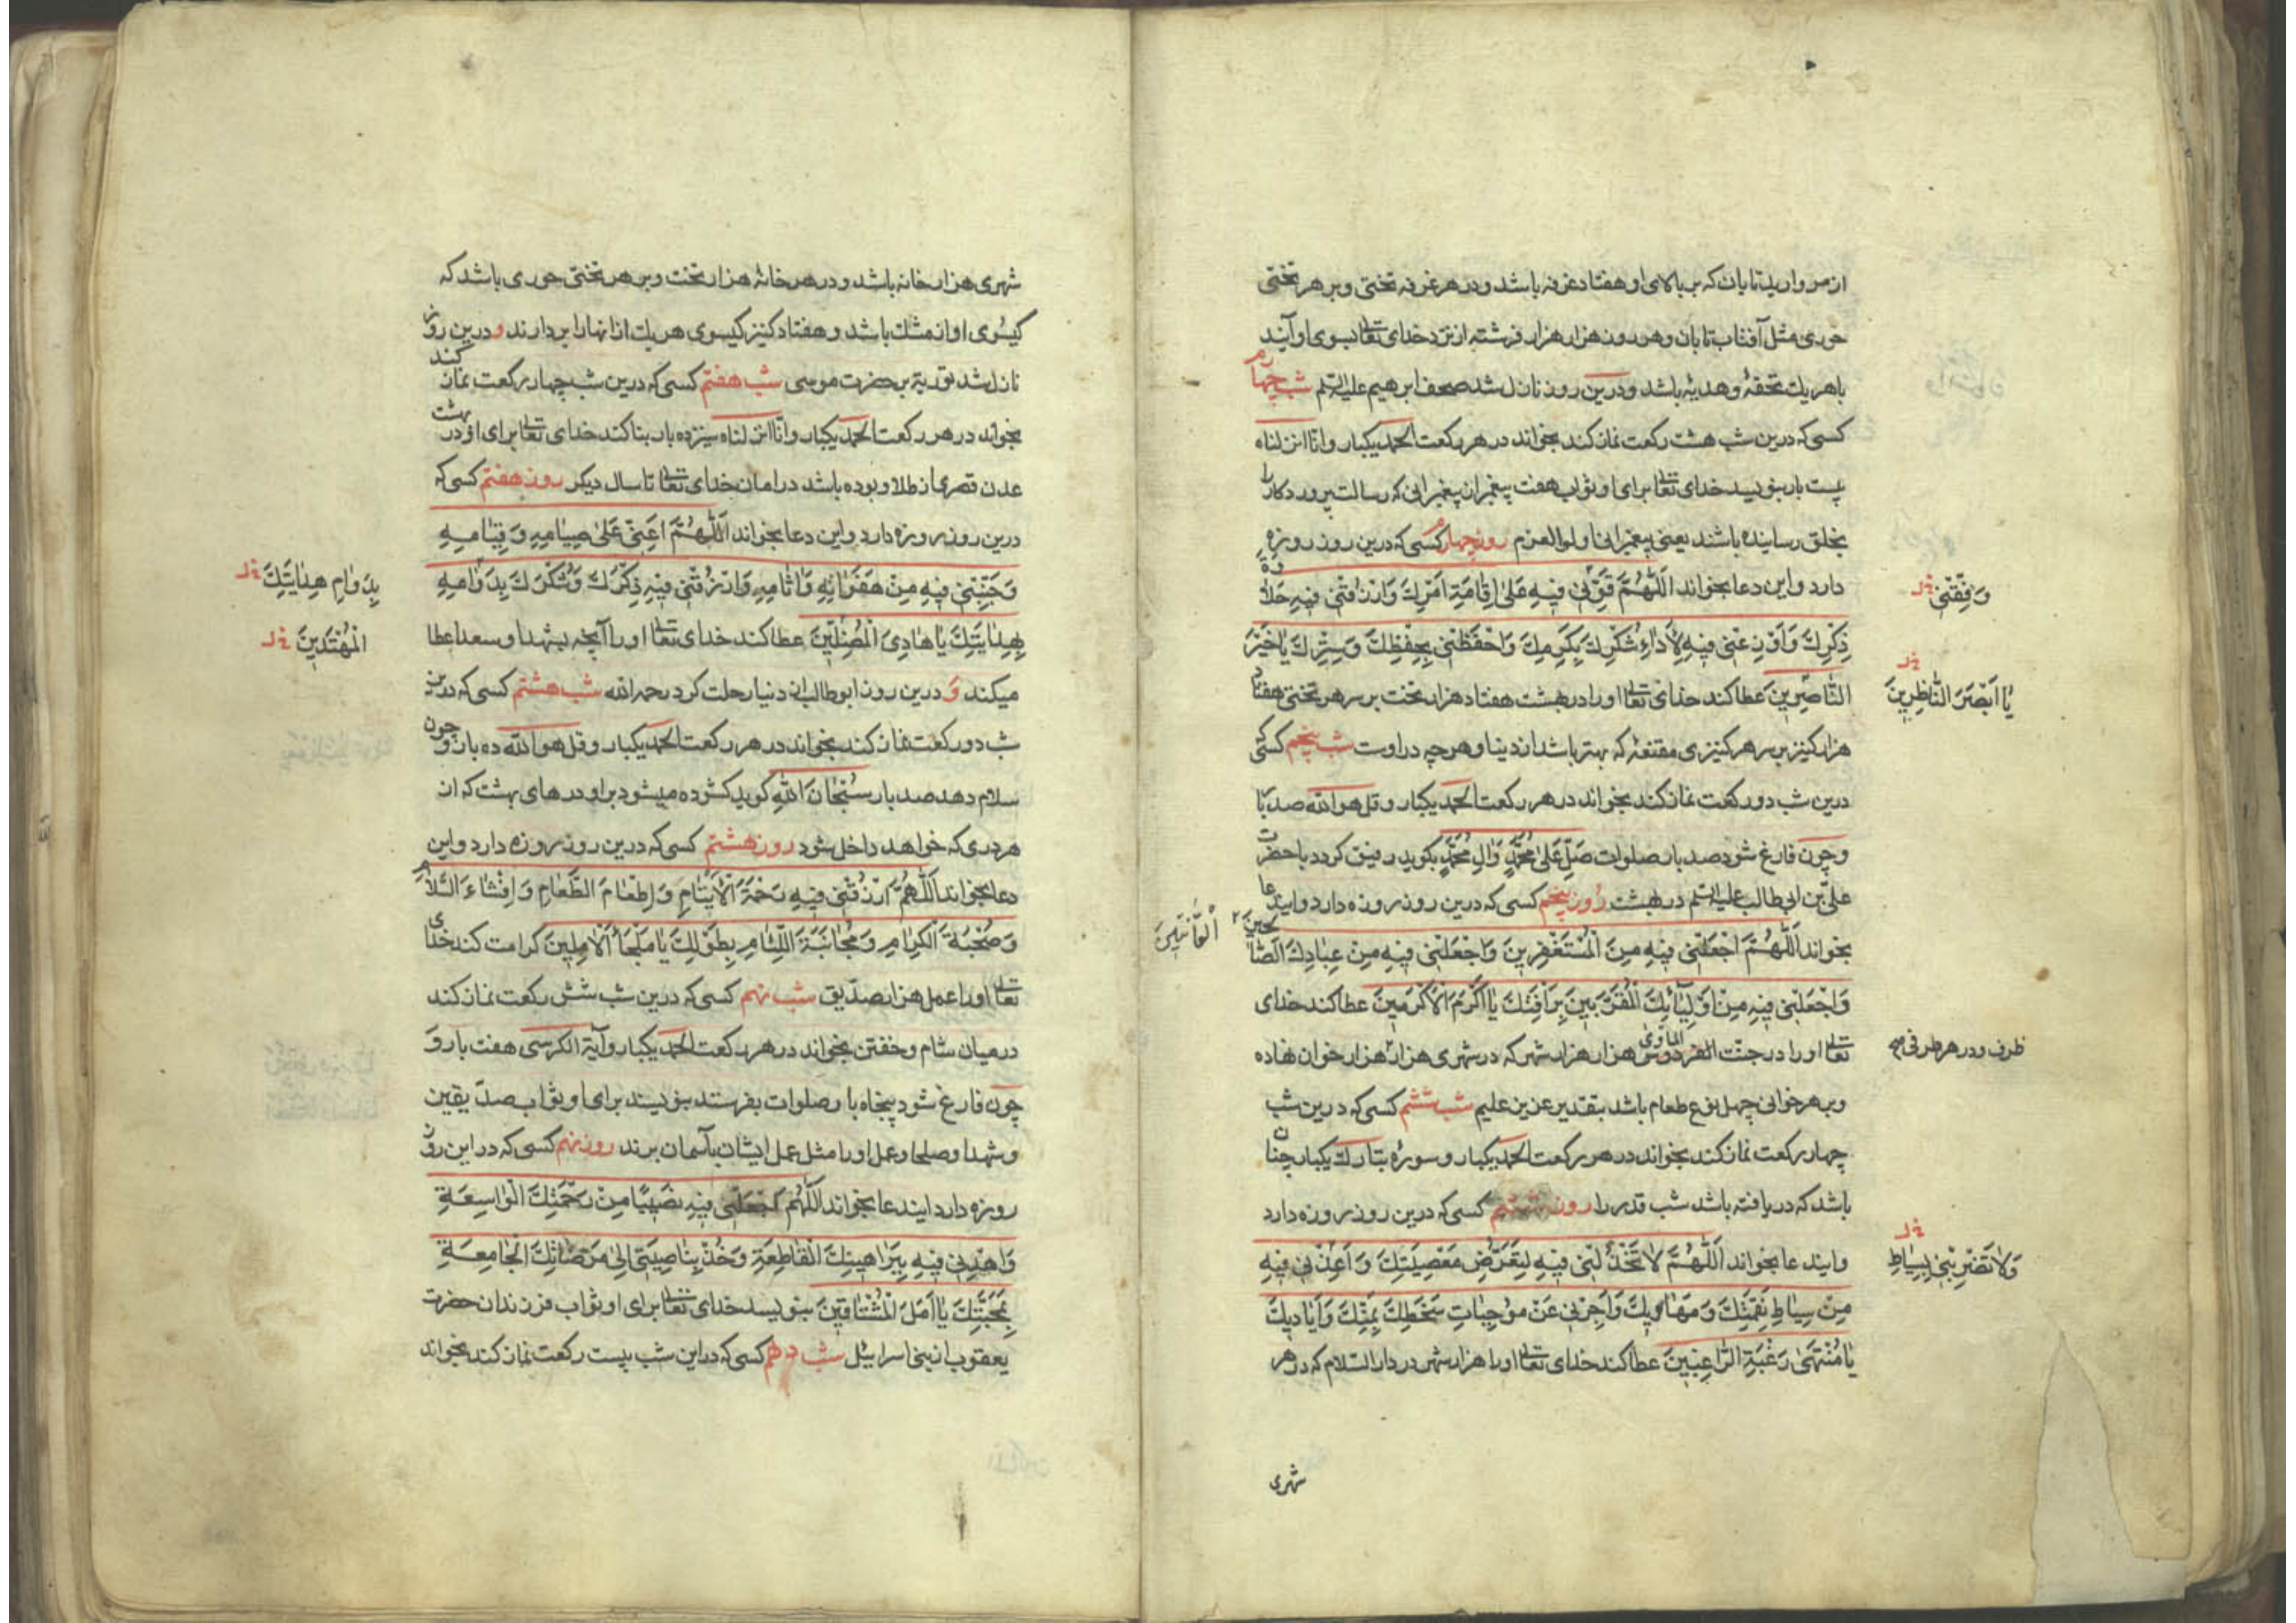 از مروارید تابان که بر بالای او هفتاد غرفه باشد و در هر غرفه تختی و بر هر تختی
حوری مثل آفتاب تابان و هر روز هزار هزار فرشته از نزد خدای تعالی بسوی او آیند
با هر یک تحفهٔ و هدیهٔ باشد و درین روز نازل شد صحف ابرهیم علیه السلم شب چهارم
کسی که درین شب هشت رکعت نماز کند بخواند در هر رکعت الحمد یکبار و انا انزلناه
بیست بار بنویسد خدای تعالی برای او ثواب هفت پیغمبر از پیغمبرانی که رسالت پروردکار را
بخلق رسانیده باشند یعنی پیغمبرانی اولوالعزم روز چهارم کسی که درین روز روزه
دارد و این دعا بخواند اَللّٰهُمَّ قَوِّنی فیهِ عَلیٰ اِقامَةِ اَمْرِكَ وَارْزُقْنی فیهِ حَلاوَة
وَفِّقْنی خ‌ل
ذِکْرِكَ وَاَوْزِعْنی فیهِ لِاَداءِ شُکْرِكَ بِکَرَمِكَ وَاحْفَظْنی بِحِفْظِكَ وَسِتْرِكَ یا خَیْرَ
النّاصِرینَ عطا کند خدای تعالی او را در بهشت هفتاد هزار تخت بر سر هر تختی هفتاد
یا اَبْصَرَ النّاظِرینَ خ‌ل
هزار کنیز بر سر هر کنیزی مقنعهٔ که بهتر باشد از دنیا و هر چه در اوست شب پنجم کسی که
درین شب دو رکعت نماز کند بخواند در هر رکعت الحمد یکبار و قل هو الله صد بار
و چون فارغ شود صد بار صلوات صَلِّ عَلیٰ مُحَمَّدٍ وَالِ مُحَمَّدٍ بکوید رفیق کردد با حضرت
علی بن ابی طالب علیه السلم در بهشت روز پنجم کسی که درین روز روزه دارد و ایندعا
بخواند اَللّٰهُمَّ اجْعَلْنی فیهِ مِنَ الْمُسْتَغْفِرینَ وَاجْعَلْنی فیهِ مِنْ عِبادِكَ الصّالحینَ
الْقانِتینَ
وَاجْعَلْنی فیهِ مِنْ اَوْلِیآئِكَ الْمُقَرَّبینَ بِرَأْفَتِكَ یا اَکْرَمَ الْاَکْرَمینَ عطا کند خدای
تعالی او را در جنت الفردوس المأوی هزار هزار شهر که در شهری هزار هزار خوان نهاده
ظرف و در هر ظرفی
و بر هر خوانی چهل نوع طعام باشد بتقدیر عزیز علیم شب ششم کسی که درین شب
چهار رکعت نماز کند بخواند در هر رکعت الحمد یکبار و سورهٔ تبارك یکبار چنان
باشد که دریافته باشد شب قدر را روز ششم کسی که درین روز روزه دارد
و ایندعا بخواند اَللّٰهُمَّ لا تَخْذُلْنی فیهِ لِتَعَرُّضِ مَعْصِیَتِكَ وَاَعِذْنی فیهِ
وَلا تَضْرِبْنی بِسِیاطِ خ‌ل
مِنْ سِیاطِ نِقْمَتِكَ وَمَهاویكَ وَاَجِرْنی مِنْ مُوجِباتِ سَخَطِكَ بِمَنِّكَ وَاَیادیكَ
یا مُنْتَهیٰ رَغْبَةِ الرّاغِبینَ عطا کند خدای تعالی او را هزار شهر در دار السلام که در هر
شهری
شهری هزار خانه باشد و در هر خانهٔ هزار تخت و بر هر تختی حوری باشد که
کیسوی او از مشك باشد و هفتاد کنیز کیسوی هر یك از انها را بردارند و درین روز
نازل شد توریة بر حضرت موسی شب هفتم کسی که درین شب چهار رکعت نماز کند
بخواند در هر رکعت الحمد یکبار و انا انزلناه سیزده بار بنا کند خدای تعالی برای او در بهشت
عدن قصری از طلا و بوده باشد در امان خدای تعالی تا سال دیکر روز هفتم کسی که
درین روز روزه دارد و این دعا بخواند اَللّٰهُمَّ اَعِنّی عَلیٰ صِیامِهِ وَقِیامِهِ
وَجَنِّبْنی فیهِ مِنْ هَفَواتِهِ وَاٰثامِهِ وَارْزُقْنی فیهِ ذِکْرَكَ وَشُکْرَكَ بِدَوامِهِ
بِدَوامِ هِدایَتِكَ خ‌ل
بِهِدایَتِكَ یا هادِیَ الْمُضِلّینَ عطا کند خدای تعالی او را آنچه بشهدا و سعدا عطا
الْمُهْتَدینَ خ‌ل
میکند و درین روز ابو طالب از دنیا رحلت کرد رحمه الله شب هشتم کسی که درین
شب دو رکعت نماز کند بخواند در هر رکعت الحمد یکبار و قل هو الله ده بار و چون
سلام دهد صد بار سُبْحانَ اللهِ کوید کشوده میشود بر او درهای بهشت که از
هر دری که خواهد داخل شود روز هشتم کسی که درین روز روزه دارد و این
دعا بخواند اَللّٰهُمَّ ارْزُقْنی فیهِ رَحْمَةَ الْاَیْتامِ وَاِطْعامَ الطَّعامِ وَاِفْشاءَ السَّلامِ
وَصُحْبَةَ الْکِرامِ وَمُجانَبَةَ اللِّئامِ بِطَوْلِكَ یا مَلْجَأَ الْاٰمِلینَ کرامت کند خدای
تعالی او را عمل هزار صدّیق شب نهم کسی که درین شب شش رکعت نماز کند
در میان شام و خفتن بخواند در هر رکعت الحمد یکبار و آیة الکرسی هفت بار و
چون فارغ شود پنجاه بار صلوات بفرستد بنویسند برای او ثواب صدّیقین
و شهدا و صلحا و عمل او را مثل عمل ایشان بآسمان برند روز نهم کسی که در این روز
روزه دارد ایندعا بخواند اَللّٰهُمَّ اجْعَلْنی فیهِ نَصیبًا مِنْ رَحْمَتِكَ الْواسِعَةِ
وَاهْدِنی فیهِ بِبَراهینِكَ الْقاطِعَةِ وَخُذْ بِناصِیَتی اِلیٰ مَرْضاتِكَ الْجامِعَةِ
بِمَحَبَّتِكَ یا اَمَلَ الْمُشْتاقینَ بنویسد خدای تعالی برای او ثواب فرزندان حضرت
یعقوب از بنی اسرائیل شب دهم کسی که در این شب بیست رکعت نماز کند بخواند